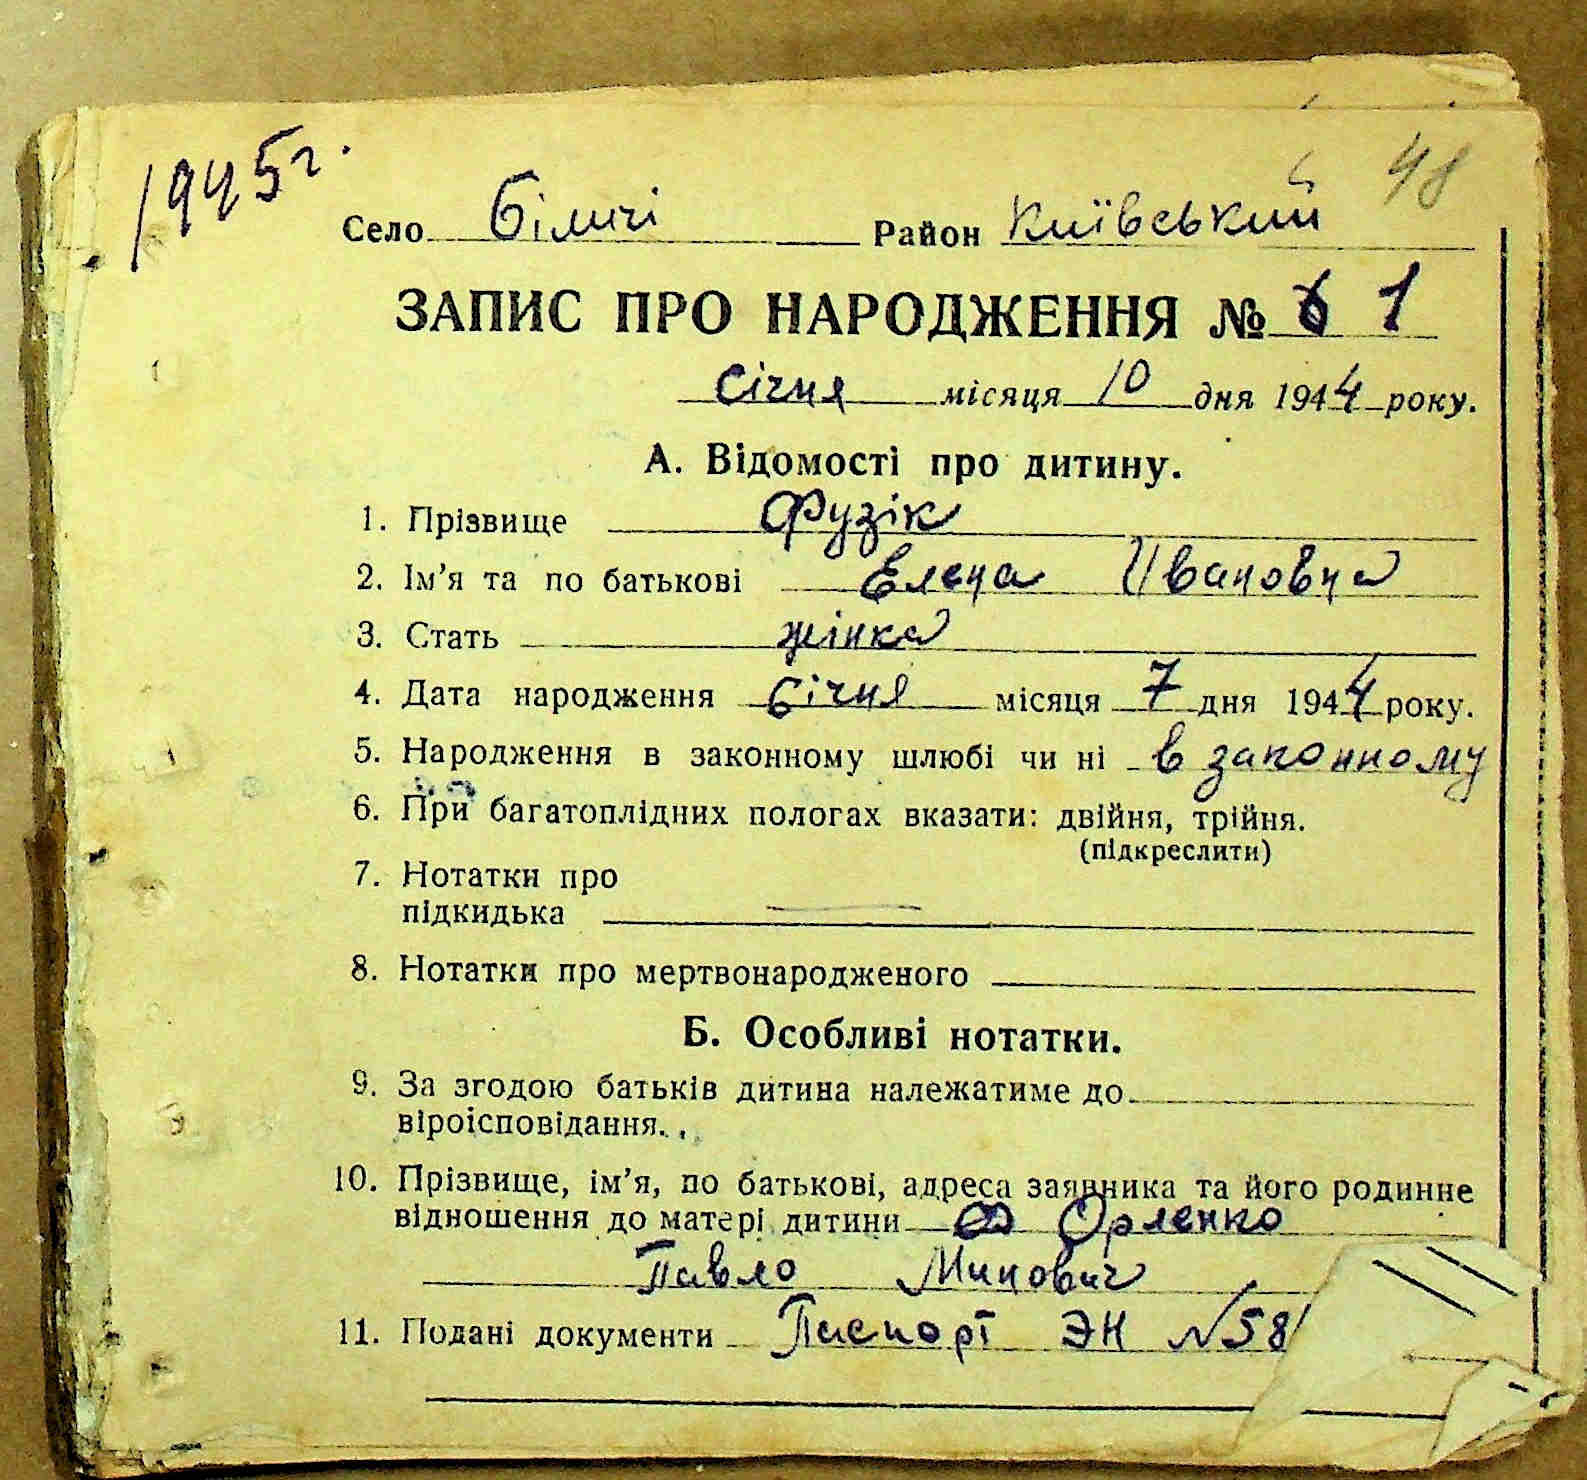 1945 г.
48
Село Біличі Район Київський
ЗАПИС ПРО НАРОДЖЕННЯ № 1
січня місяця 10 дня 1944 року.
А. Відомості про дитину.
1. Прізвище Фузік
2. Ім'я та по батькові Елена Ивановна
3. Стать жінка
4. Дата народження січня місяця 7 дня 1944 року.
5. Народження в законному шлюбі чи ні в законному
6. При багатоплідних пологах вказати: двійня, трійня.
(підкреслити)
7. Нотатки про
підкидька —
8. Нотатки про мертвонародженого
Б. Особливі нотатки.
9. За згодою батьків дитина належатиме до
віроісповідання.
10. Прізвище, ім'я, по батькові, адреса заявника та його родинне
відношення до матері дитини Орленко
Павло Минович
11. Подані документи Паспорт ЭН № 58